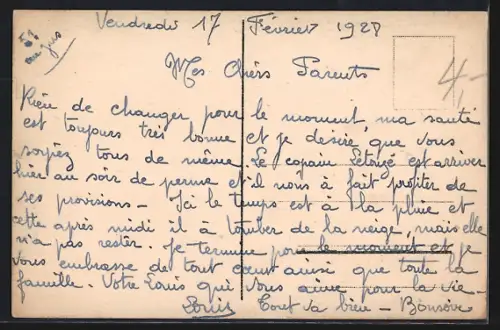 Vendredi 17 Février 1928
51
au jus
4,-
Mes Chèrs Parents
Rière de changer pour le moment, ma santé
est toujours très bonne et je désire que vous
soyiez tous de même. Le copain Letouzé est arriver
hier au soir de perme et il nous à fait profiter de
ses provisions - Ici le temps est à la pluie et
cette après midi il à tomber de la neige, mais elle
n'a pas rester. Je termine pour le moment et je
vous embrasse de tout cœur ainsi que toute la
famille. Votre Louis qui vous aime pour la vie -
Louis Tout va bien - Bonsoir